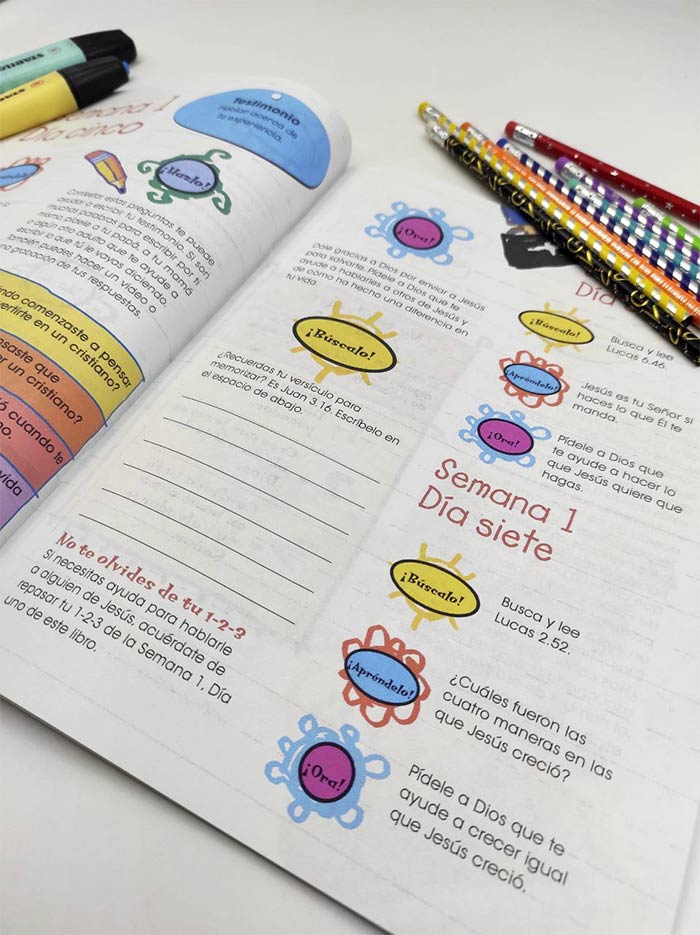 STABILO
STABILO
Semana 1
Día cinco
Testimonio
Hablar acerca de
tu experiencia.
¡Hazlo!
Contestar estas preguntas te puede
ayudar a escribir tu testimonio. Si son
muchas palabras para escribir por ti
mismo pídele a tu papá, a tu mamá
o algún otro adulto que te ayude a
escribir lo que tú le vayas diciendo.
También puedes hacer un video o
una grabación de tus respuestas.
comenzaste a pensar
en un cristiano?
que
er un cristiano?
cuando te
no.
vida
¡Ora!
Dale gracias a Dios por enviar a Jesús
para salvarte. Pídele a Dios que te
ayude a hablarles a otros de Jesús y
de cómo ha hecho una diferencia en
tu vida.
¡Búscalo!
¿Recuerdas tu versículo para
memorizar? Es Juan 3.16. Escríbelo en
el espacio de abajo.
No te olvides de tu 1-2-3
Si necesitas ayuda para hablarle
a alguien de Jesús, acuérdate de
repasar tu 1-2-3 de la Semana 1, Día
uno de este libro.
Día
¡Búscalo!
Busca y lee
Lucas 6.46.
¡Apréndelo!
Jesús es tu Señor si
haces lo que Él te
manda.
¡Ora!
Pídele a Dios que
te ayude a hacer lo
que Jesús quiere que
hagas.
Semana 1
Día siete
¡Búscalo!
Busca y lee
Lucas 2.52.
¡Apréndelo!
¿Cuáles fueron las
cuatro maneras en las
que Jesús creció?
¡Ora!
Pídele a Dios que te
ayude a crecer igual
que Jesús creció.